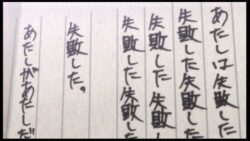 あたしは失敗した
失敗した失敗した
失敗した失敗した
失敗した失敗した
失敗した。
あたしがあたしだ